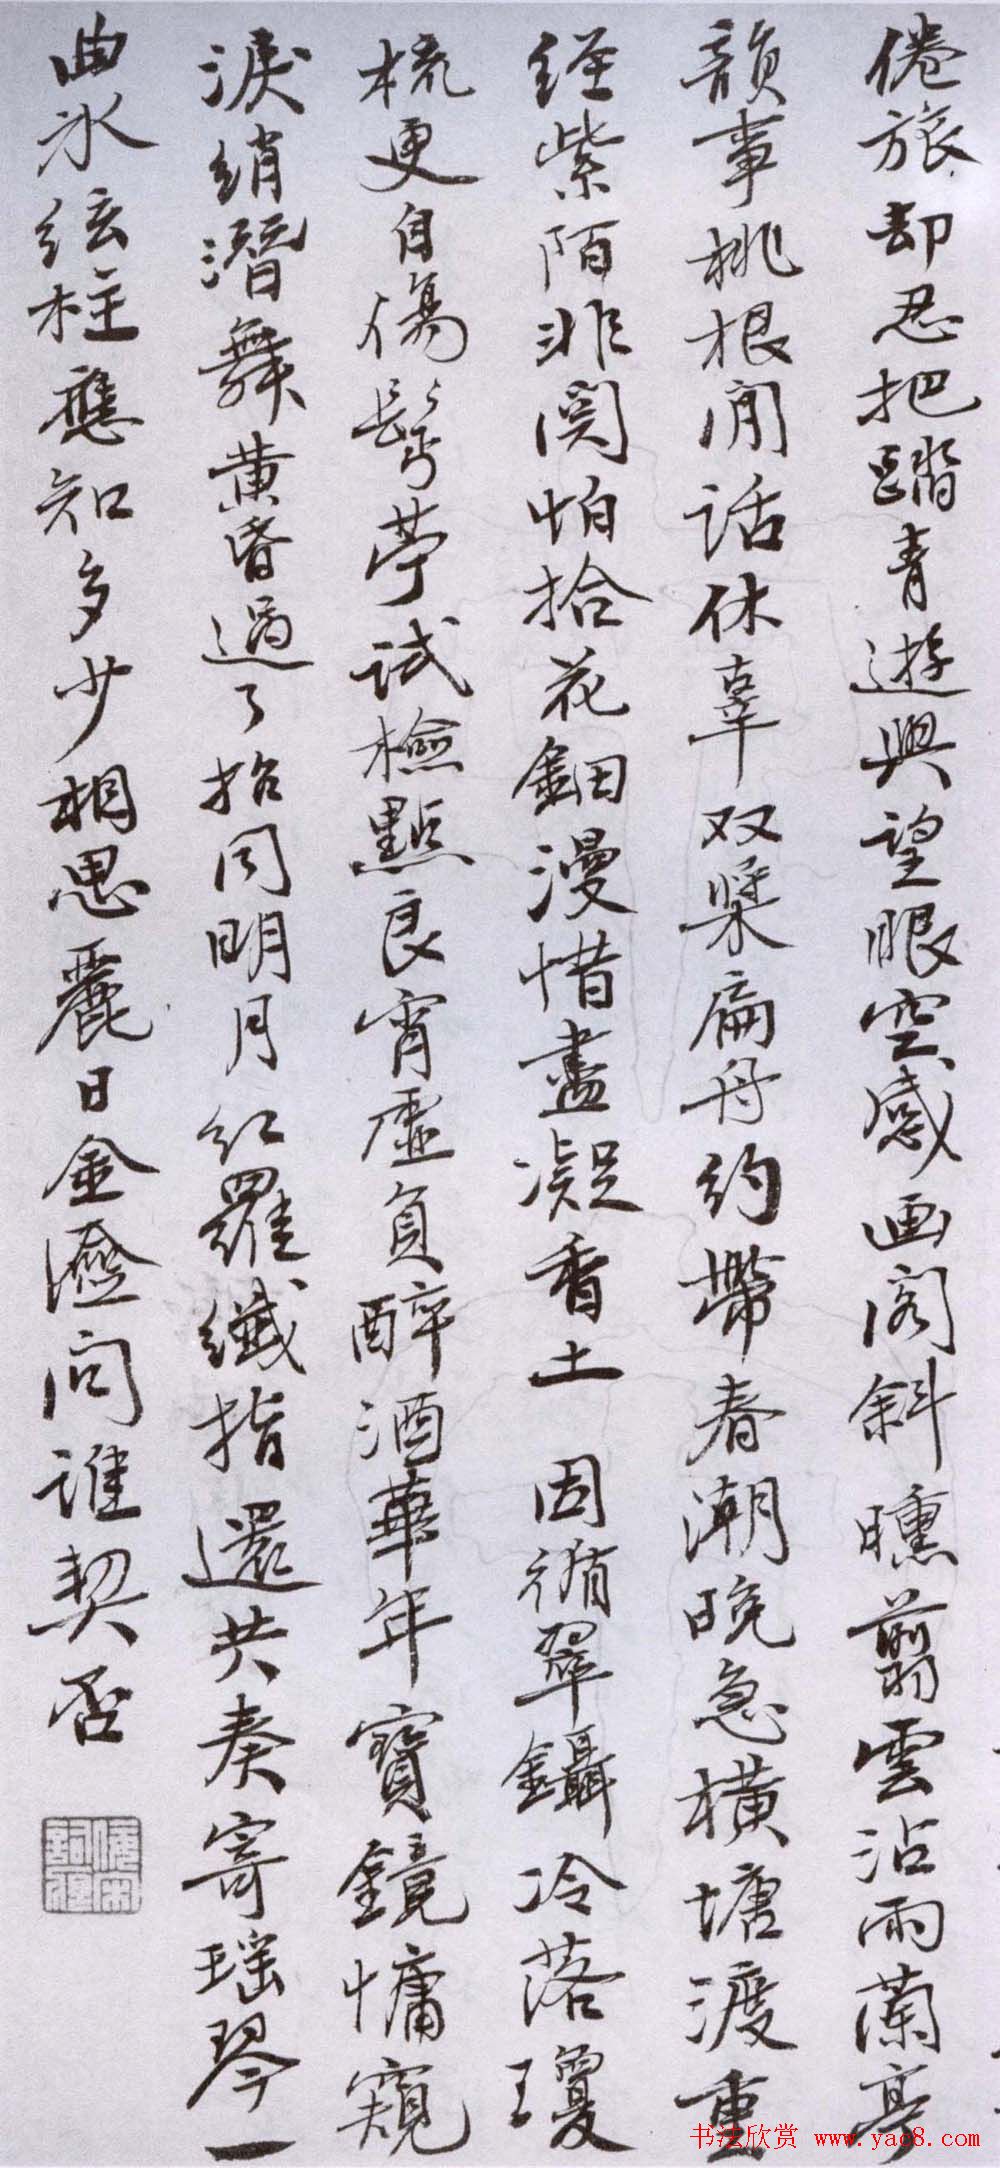 倦旅却忍把踏青遊興望眼空感画阁斜曛翦雲沾雨蘭亭
韻事桃根閒话休辜双槳扁舟约帶春潮晚急横塘渡重
经紫陌非関怕拾花鈿漫惜盡凝香土 因循翠鑷冷落瓊
梳更自傷髩苧试檢點良宵虚負醉酒華年寶鏡慵窺
淚绡潛舞黄昏過了招同明月红羅纖指還共奏寄瑶琴一
曲冰絃柱應知多少相思麗日金 问谁契否
书法欣赏 www.yac8.com